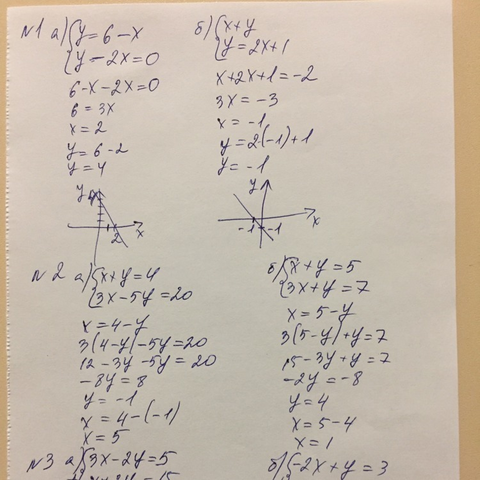 N1 а) {y = 6 - x
{y - 2x = 0
6 - x - 2x = 0
6 = 3x
x = 2
y = 6 - 2
y = 4
y
x
2
б) {x + y
{y = 2x + 1
x + 2x + 1 = -2
3x = -3
x = -1
y = 2·(-1) + 1
y = -1
y
x
-1
-1
N2 а) {x + y = 4
{3x - 5y = 20
x = 4 - y
3(4 - y) - 5y = 20
12 - 3y - 5y = 20
-8y = 8
y = -1
x = 4 - (-1)
x = 5
б) {x + y = 5
{3x + y = 7
x = 5 - y
3(5 - y) + y = 7
15 - 3y + y = 7
-2y = -8
y = 4
x = 5 - 4
x = 1
N3 а) {3x - 2y = 5
б) {-2x + y = 3